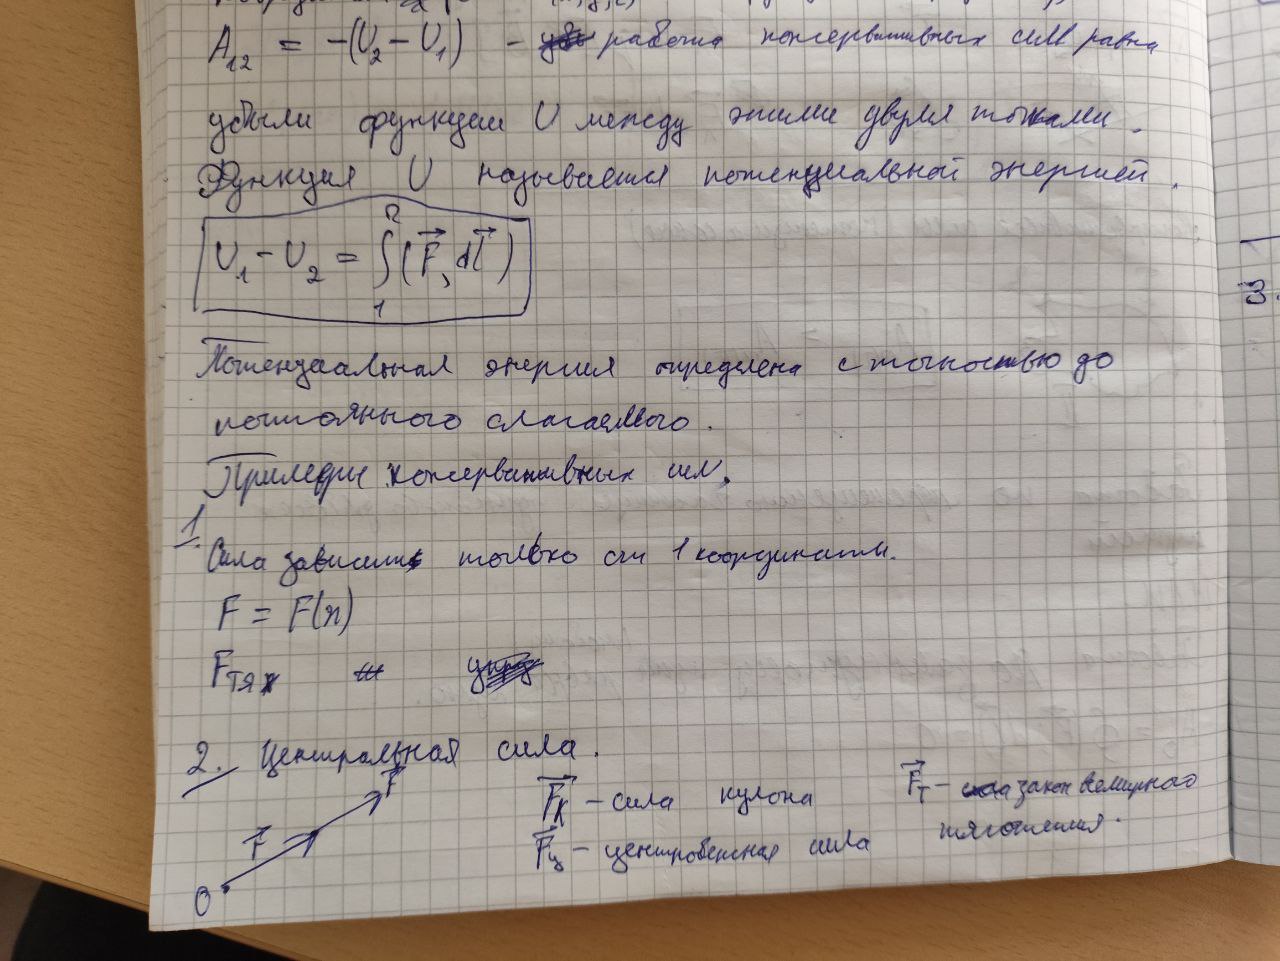 A₁₂ = -(U₂ - U₁) - работа консервативных сил равна
убыли функции U между этими двумя точками.
Функция U называется потенциальной энергией.
U₁ - U₂ = ∫₁² (F⃗, dl⃗)
Потенциальная энергия определена с точностью до
постоянного слагаемого.
Примеры консервативных сил.
1. Сила зависит только от 1 координаты.
F = F(x)
Fтяж
2. Центральная сила.
F⃗к - сила кулона F⃗т - закон всемирного
тяготения.
F⃗ц - центробежная сила
r⃗ F⃗
O
3.